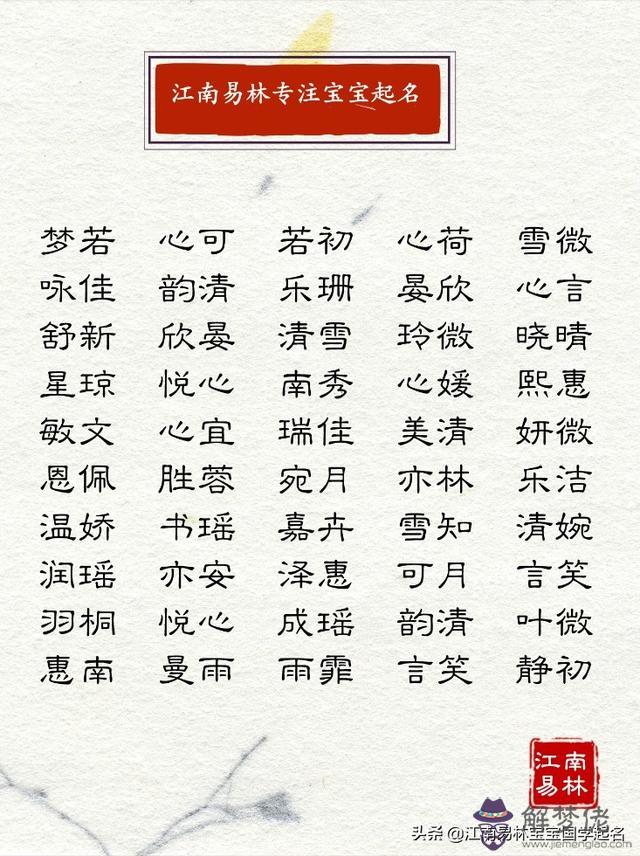 江南易林专注宝宝起名
梦若 心可 若初 心荷 雪微
咏佳 韵清 乐珊 晏欣 心言
舒新 欣晏 清雪 玲微 晓晴
星琼 悦心 南秀 心媛 熙惠
敏文 心宜 瑞佳 美清 妍微
恩佩 胜蓉 宛月 亦林 乐洁
温娇 书瑶 嘉卉 雪知 清婉
润瑶 亦安 泽惠 可月 言笑
羽桐 悦心 成瑶 韵清 叶微
惠南 曼雨 雨霏 言笑 静初
江南
易林
解梦佬
头条 @江南易林宝宝国学起名
www.jiemenglao.com